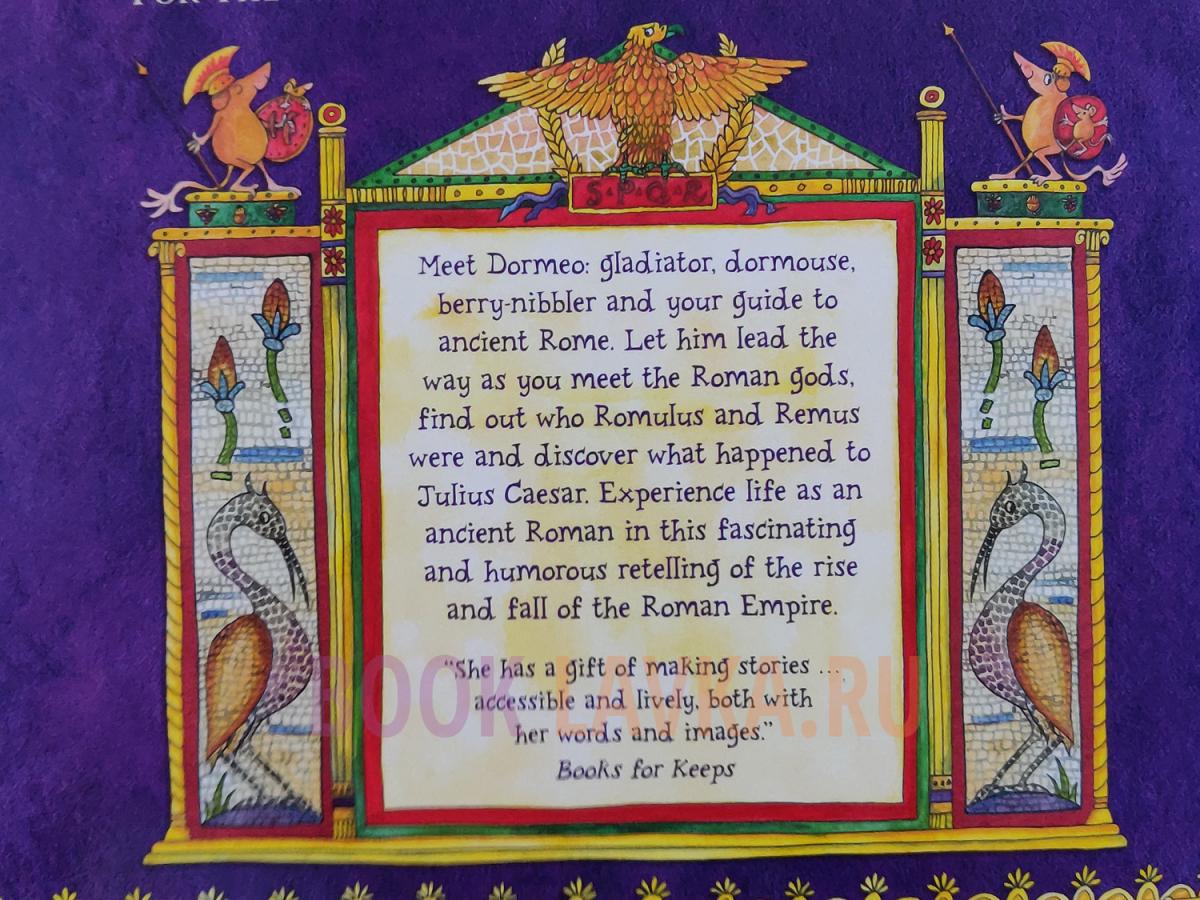 FOR THE
S·P·Q·R
Meet Dormeo: gladiator, dormouse,
berry-nibbler and your guide to
ancient Rome. Let him lead the
way as you meet the Roman gods,
find out who Romulus and Remus
were and discover what happened to
Julius Caesar. Experience life as an
ancient Roman in this fascinating
and humorous retelling of the rise
and fall of the Roman Empire.
“She has a gift of making stories ...
accessible and lively, both with
her words and images.”
Books for Keeps
BOOK-LAVKA.RU